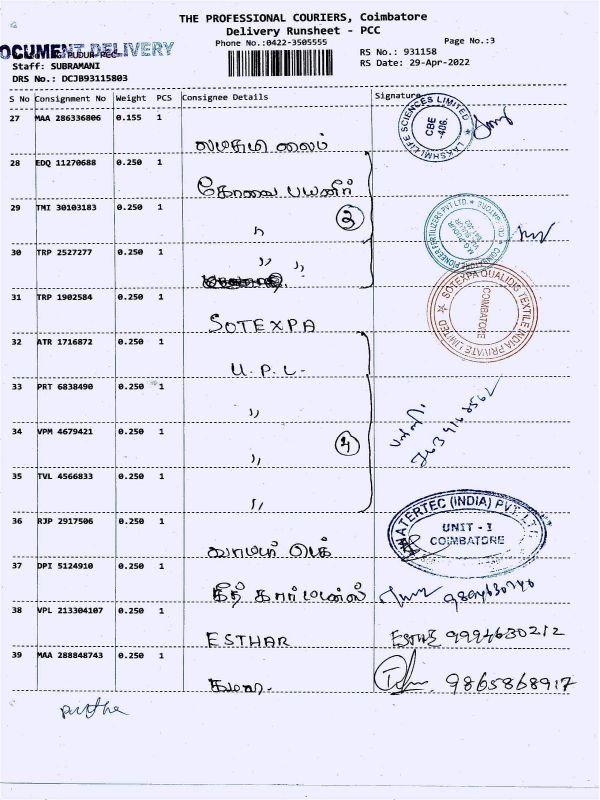 THE PROFESSIONAL COURIERS, Coimbatore
Delivery Runsheet - PCC
Phone No.:0422-3505555
Page No.:3
DOCUMENT DELIVERY
RS No.: 931158
Staff: SUBRAMANI
RS Date: 29-Apr-2022
DRS No.: DCJB93115803
S No Consignment No Weight PCS Consignee Details Signature
27 MAA 286336806 0.155 1
LAKSHMI LIFE SCIENCES LIMITED
CBE
28 EDQ 11270688 0.250 1
கோவை பயனீர்
29 TMI 30103183 0.250 1
"
3
30 TRP 2527277 0.250 1
" "
31 TRP 1902584 0.250 1
SOTEXPA
SOTEXPA QUALIDIS TEXTILE INDIA PRIVATE LIMITED
COIMBATORE
32 ATR 1716872 0.250 1
U.P.L-
33 PRT 6838490 0.250 1
"
34 VPM 4679421 0.250 1
"
4
35 TVL 4566833 0.250 1
"
36 RJP 2917506 0.250 1
(INDIA) PVT. LTD
UNIT - I
COIMBATORE
வாமடர் டெக்
37 DPI 5124910 0.250 1
கீத் கார்மண்ட்ஸ்
38 VPL 213304107 0.250 1
ESTHAR
9994630212
39 MAA 288848743 0.250 1
கமலா.
9865868917